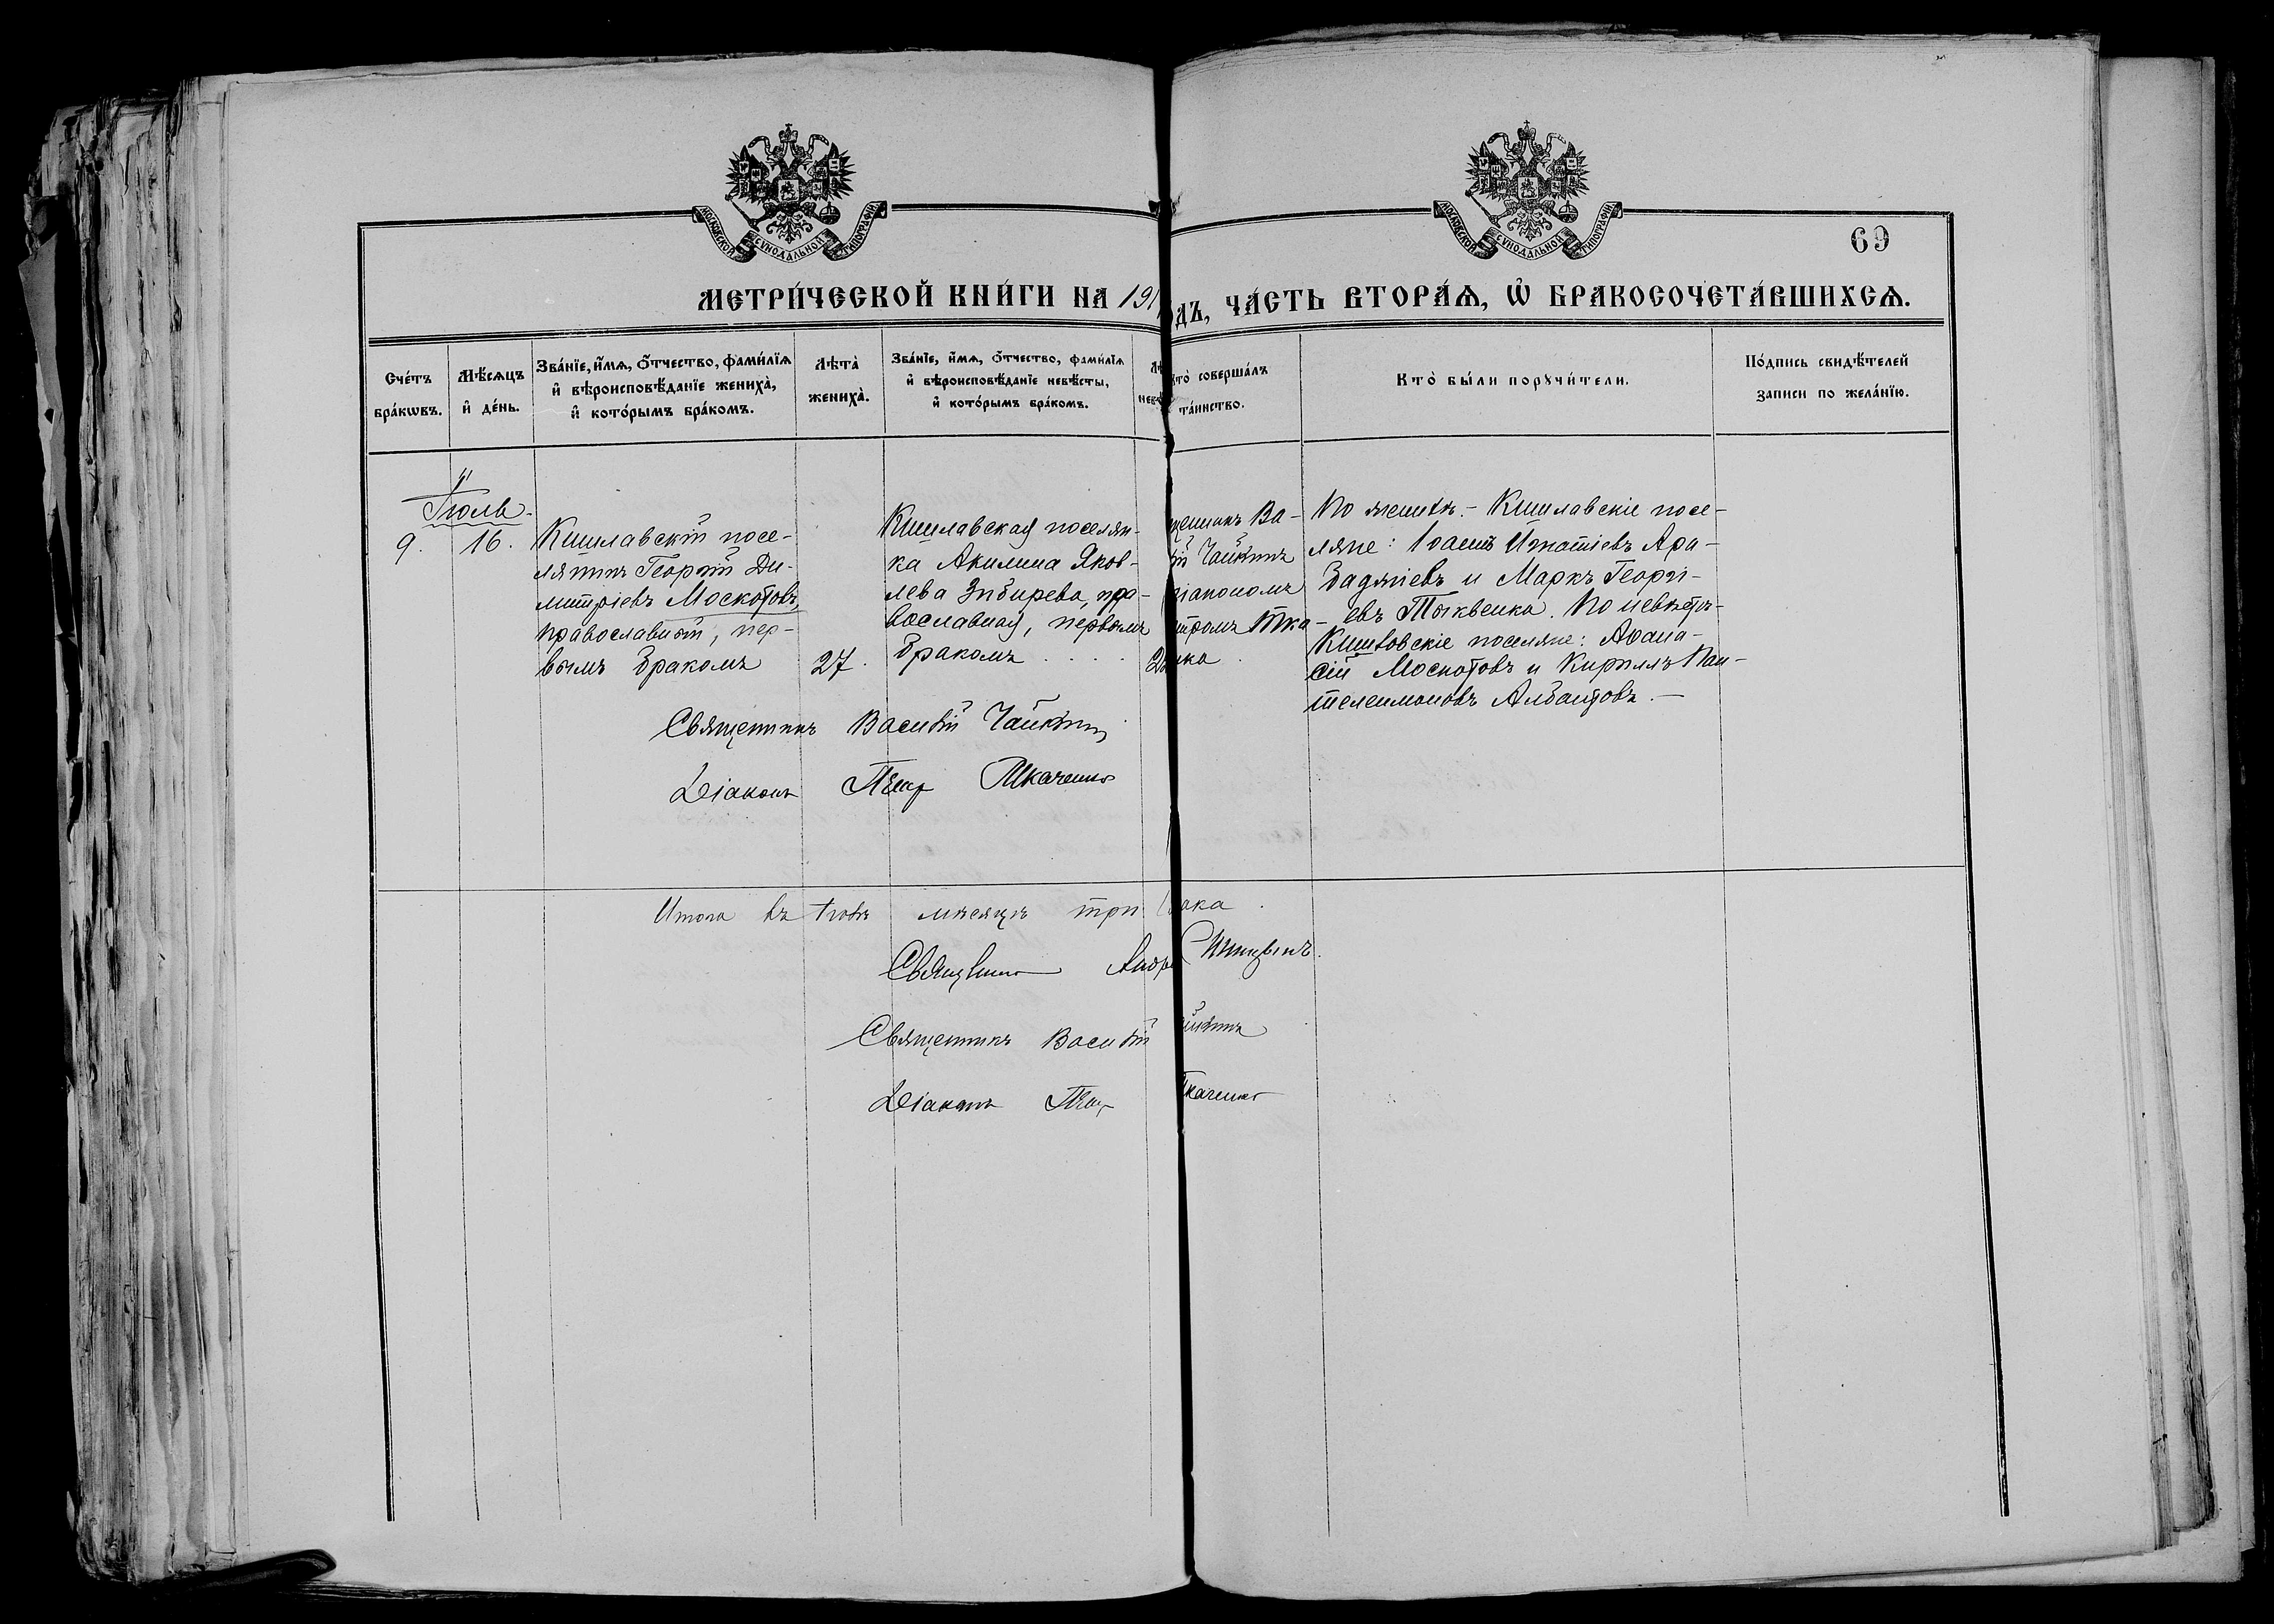 МОСКОВСКОЙ СУНОДАЛЬНОЙ ТИПОГРАФІИ
МОСКОВСКОЙ СУНОДАЛЬНОЙ ТИПОГРАФІИ
69
МЕТРИ́ЧЕСКОЙ КНИ́ГИ НА 191
дъ, ЧА́СТЬ ВТОРА́Ѧ, Ѽ БРАКОСОЧЕТА́ВШИХСѦ.
Сче́тъ
бра́кѡвъ.
Мѣ́сѧцъ
и҆ де́нь.
Зва́нїе, и҆́мѧ, ѻ҆́тчество, фами́лїѧ
и҆ вѣроисповѣ́данїе жениха̀,
и҆ кото́рымъ бра́комъ.
Лѣта̀
жениха̀.
Зва́нїе, и҆́мѧ, ѻ҆́тчество, фами́лїѧ
и҆ вѣроисповѣ́данїе невѣ́сты,
и҆ кото́рымъ бра́комъ.
Кто̀ соверша́лъ
та́инство.
Кто̀ бы́ли порꙋчи́тели.
По́дпись свидѣ́телей
записи по жела́нїю.
Іюль.
9.
16.
Кишлавскій посе-
лянинъ Георгій Ди-
митріевъ Москотовъ,
православный, пер-
вымъ бракомъ
27.
Кишлавская поселян-
ка Акилина Яков-
лева Зибирева, пра-
вославная, первымъ
бракомъ
щенникъ Ва-
ій Чайкинъ
діакономъ
тромъ Тка-
нка.
По женихѣ.- Кишлавскіе посе-
ляне: Іоаннъ Игнатіевъ Ара-
баджіевъ и Маркъ Георгі-
евъ Тыквенко. По невѣстѣ-
Кишлавскіе поселяне: Аѳана-
сій Москотовъ и Кириллъ Пан-
телеимоновъ Албантовъ.-
Священникъ Василій Чайкинъ
Діаконъ Петръ Ткаченко
Итого въ Іюлѣ мѣсяцѣ три брака.
Священникъ Андр
Священникъ Василій йкинъ
Діаконъ Петръ Ткаченко